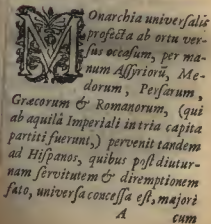 MOnarchia universalis
profecta ab ortu ver-
sus occasum, per ma-
num Assyriorũ, Me-
dorum, Persarum,
Græcorum & Romanorum, (qui
ab aquilâ Imperiali in tria capita
partiti fuerunt,) pervenit tandem
ad Hispanos, quibus post diutur-
nam servitutem & diremptionem
fato, universa concessa est, majori
A cum